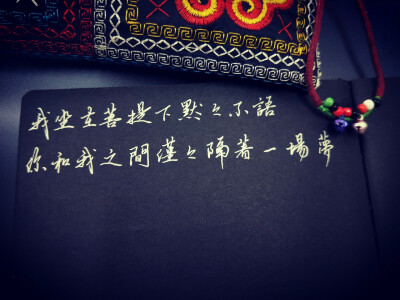 我坐在菩提下默々不語
你和我之間僅々隔著一場夢